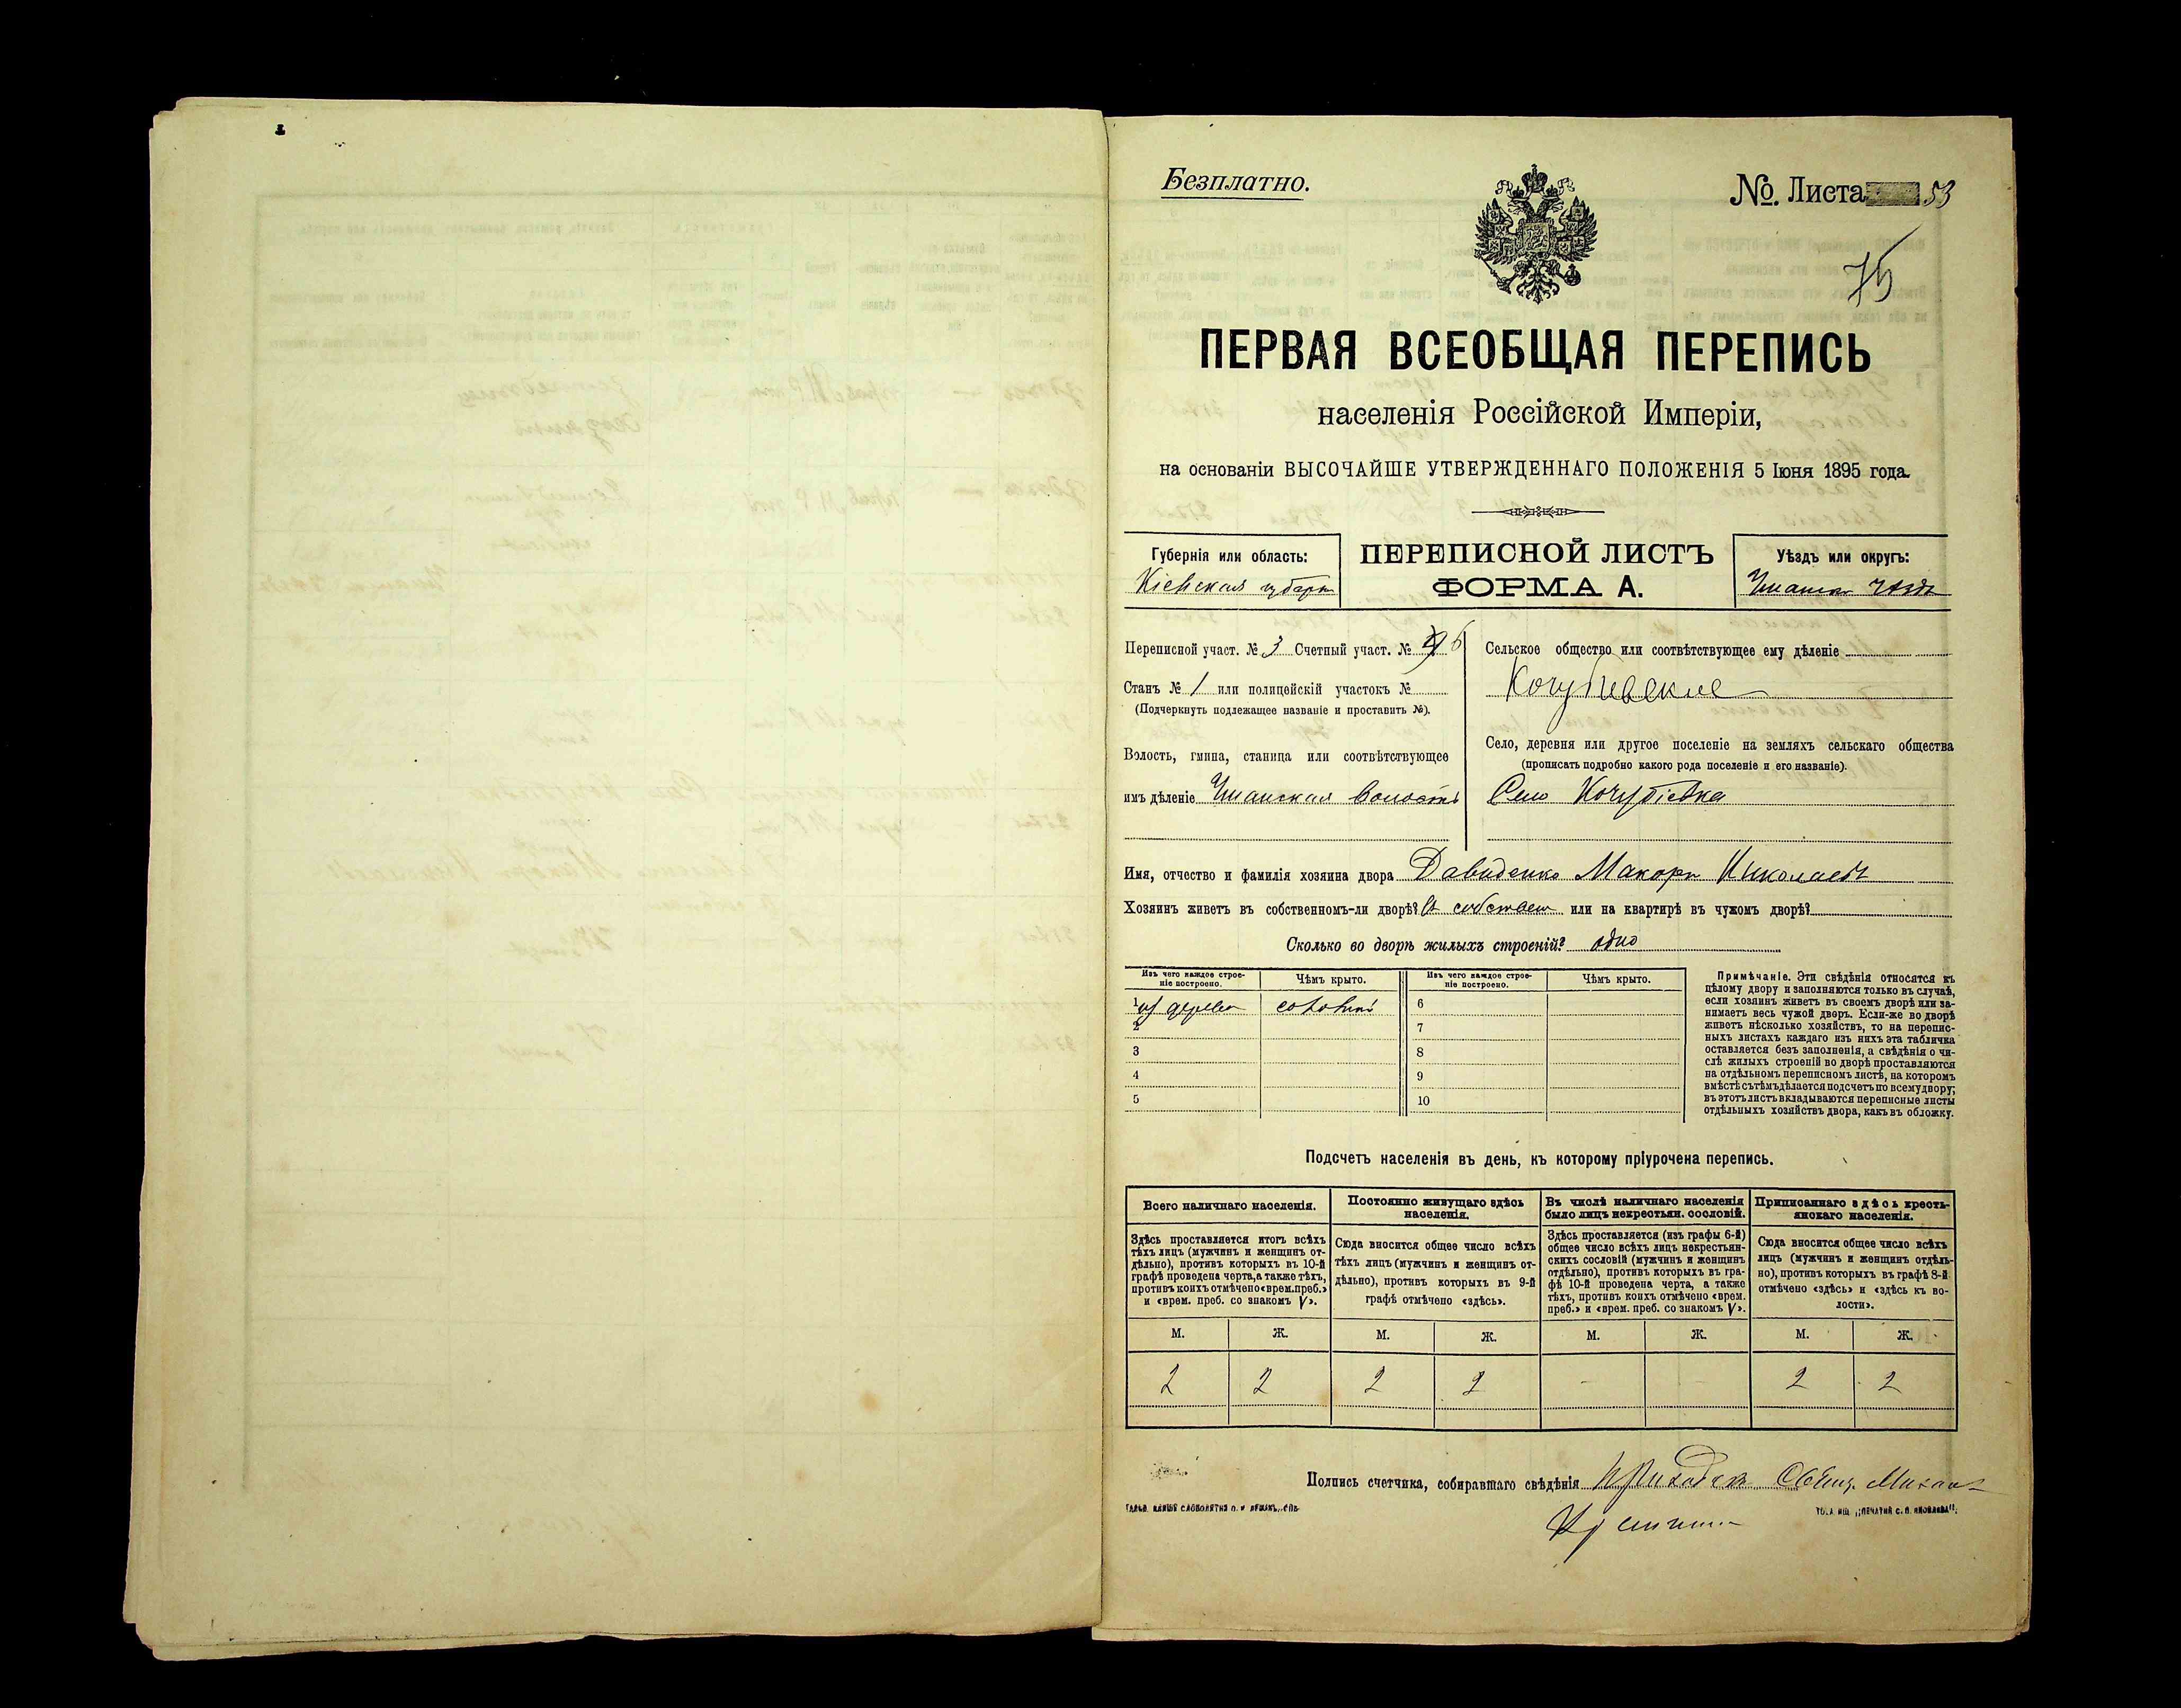 Безплатно.
№. Листа 53
75
ПЕРВАЯ ВСЕОБЩАЯ ПЕРЕПИСЬ
населенія Россійской Имперіи,
на основаніи ВЫСОЧАЙШЕ УТВЕРЖДЕННАГО ПОЛОЖЕНІЯ 5 Іюня 1895 года.
Губернія или область:
Кіевская губерн
ПЕРЕПИСНОЙ ЛИСТЪ
ФОРМА А.
Уѣздъ или округъ:
Уман уѣздъ
Переписной участ. № 3 Счетный участ. №
Станъ № 1 или полицейскій участокъ №
(Подчеркнуть подлежащее названіе и проставить №).
Волость, гмина, станица или соотвѣтствующее
имъ дѣленіе Уманская волость
Сельское общество или соотвѣтствующее ему дѣленіе
Кочубіевское
Село, деревня или другое поселеніе на земляхъ сельскаго общества
(прописать подробно какого рода поселеніе и его названіе).
Село Кочубіевка
Имя, отчество и фамилія хозяина двора Давиденко Макаръ Николаевъ
Хозяинъ живетъ въ собственномъ-ли дворѣ? В собствен или на квартирѣ въ чужомъ дворѣ?
Сколько во дворѣ жилыхъ строеній? одно
Изъ чего каждое строе-
ніе построено.
Чѣмъ крыто.
Изъ чего каждое строе-
ніе построено.
Чѣмъ крыто.
1 из дерева
2
3
4
5
6
7
8
9
10
Примѣчаніе. Эти свѣдѣнія относятся къ
цѣлому двору и заполняются только въ случаѣ,
если хозяинъ живетъ въ своемъ дворѣ или за-
нимаетъ весь чужой дворъ. Если-же во дворѣ
живетъ нѣсколько хозяйствъ, то на перепис-
ныхъ листахъ каждаго изъ нихъ эта табличка
оставляется безъ заполненія, а свѣдѣнія о чи-
слѣ жилыхъ строеній во дворѣ проставляются
на отдѣльномъ переписномъ листѣ, на которомъ
вмѣстѣ съ тѣмъ дѣлается подсчетъ по всему двору;
въ этотъ листъ вкладываются переписные листы
отдѣльныхъ хозяйствъ двора, какъ въ обложку.
Подсчетъ населенія въ день, къ которому пріурочена перепись.
Всего наличнаго населенія.
Постоянно живущаго здѣсь
населенія.
Въ числѣ наличнаго населенія
было лицъ некрестьян. сословій.
Приписаннаго здѣсь кресть-
янскаго населенія.
Здѣсь проставляется итогъ всѣхъ
тѣхъ лицъ (мужчинъ и женщинъ от-
дѣльно), противъ которыхъ въ 10-й
графѣ проведена черта, а также тѣхъ,
противъ коихъ отмѣчено «врем. преб.»
и «врем. преб. со знакомъ V».
Сюда вносится общее число всѣхъ
тѣхъ лицъ (мужчинъ и женщинъ от-
дѣльно), противъ которыхъ въ 9-й
графѣ отмѣчено «здѣсь».
Здѣсь проставляется (изъ графы 6-й)
общее число всѣхъ лицъ некрестьян-
скихъ сословій (мужчинъ и женщинъ
отдѣльно), противъ которыхъ въ гра-
фѣ 10-й проведена черта, а также
тѣхъ, противъ коихъ отмѣчено «врем.
преб.» и «врем. преб. со знакомъ V».
Сюда вносится общее число всѣхъ
лицъ (мужчинъ и женщинъ отдѣль-
но), противъ которыхъ въ графѣ 8-й
отмѣчено «здѣсь» и «здѣсь къ во-
лости».
М. Ж. М. Ж. М. Ж. М. Ж.
2 2 2 2 - - 2 2
Подпись счетчика, собиравшаго свѣдѣнія